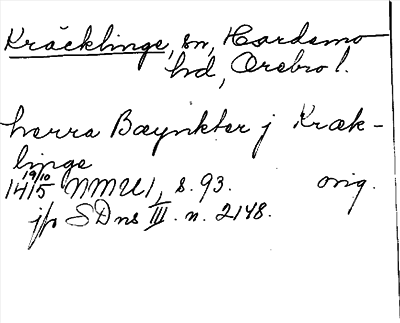 Kräcklinge, sn, Hardemo
hd, Örebro l.
herra Bæynkter j Kræk-
linge
19/10
1415 NMU 1, s. 93. orig.
jfr SDns III. n. 2148.